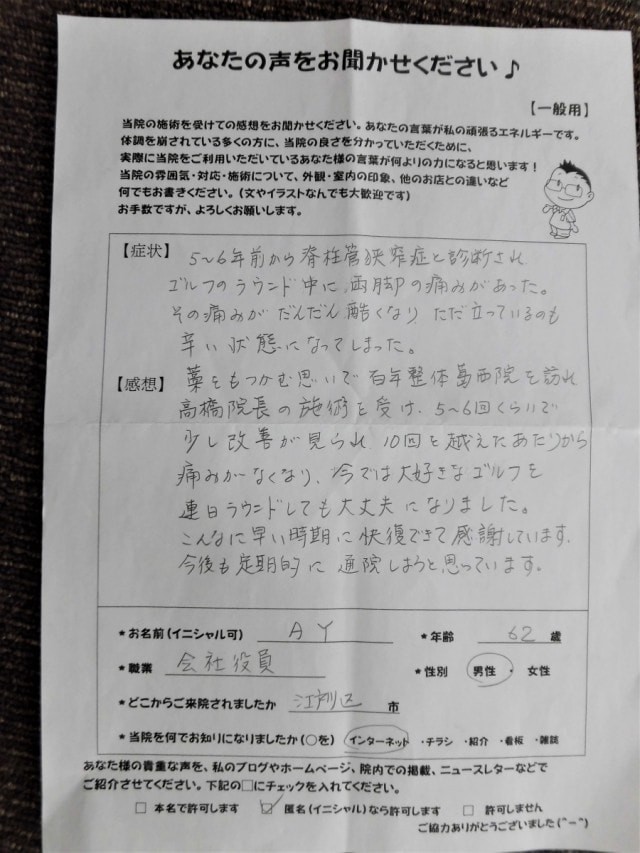 あなたの声をお聞かせください♪
【一般用】
当院の施術を受けての感想をお聞かせください。あなたの言葉が私の頑張るエネルギーです。
体調を崩されている多くの方に、当院の良さを分かっていただくために、
実際に当院をご利用いただいているあなた様の言葉が何よりの力になると思います！
当院の雰囲気・対応・施術について、外観・室内の印象、他のお店との違いなど
何でもお書きください。(文やイラストなんでも大歓迎です)
お手数ですが、よろしくお願いします。
【症状】 5～6年前から脊柱管狭窄症と診断され
ゴルフのラウンド中に、両脚の痛みがあった。
その痛みがだんだん酷くなり、ただ立っているのも
辛い状態になってしまった。
【感想】 藁をもつかむ思いで百年整体葛西院を訪れ
高橋院長の施術を受け、5～6回くらいで
少し改善が見られ、10回を越えたあたりから
痛みがなくなり、今では大好きなゴルフを
連日ラウンドしても大丈夫になりました。
こんなに早い時期に快復できて感謝しています。
今後も定期的に通院しようと思っています。
★お名前(イニシャル可) A Y ★年齢 62 歳
★職業 会社役員 ★性別 男性 ・ 女性
★どこからご来院されましたか 江戸川区 市
★当院を何でお知りになりましたか(○を) インターネット ・チラシ ・紹介 ・看板 ・雑誌
あなた様の貴重な声を、私のブログやホームページ、院内での掲載、ニュースレターなどで
ご紹介させてください。下記の□にチェックを入れてください。
□ 本名で許可します ☑ 匿名(イニシャル)なら許可します □ 許可しません
ご協力ありがとうございました(^-^)